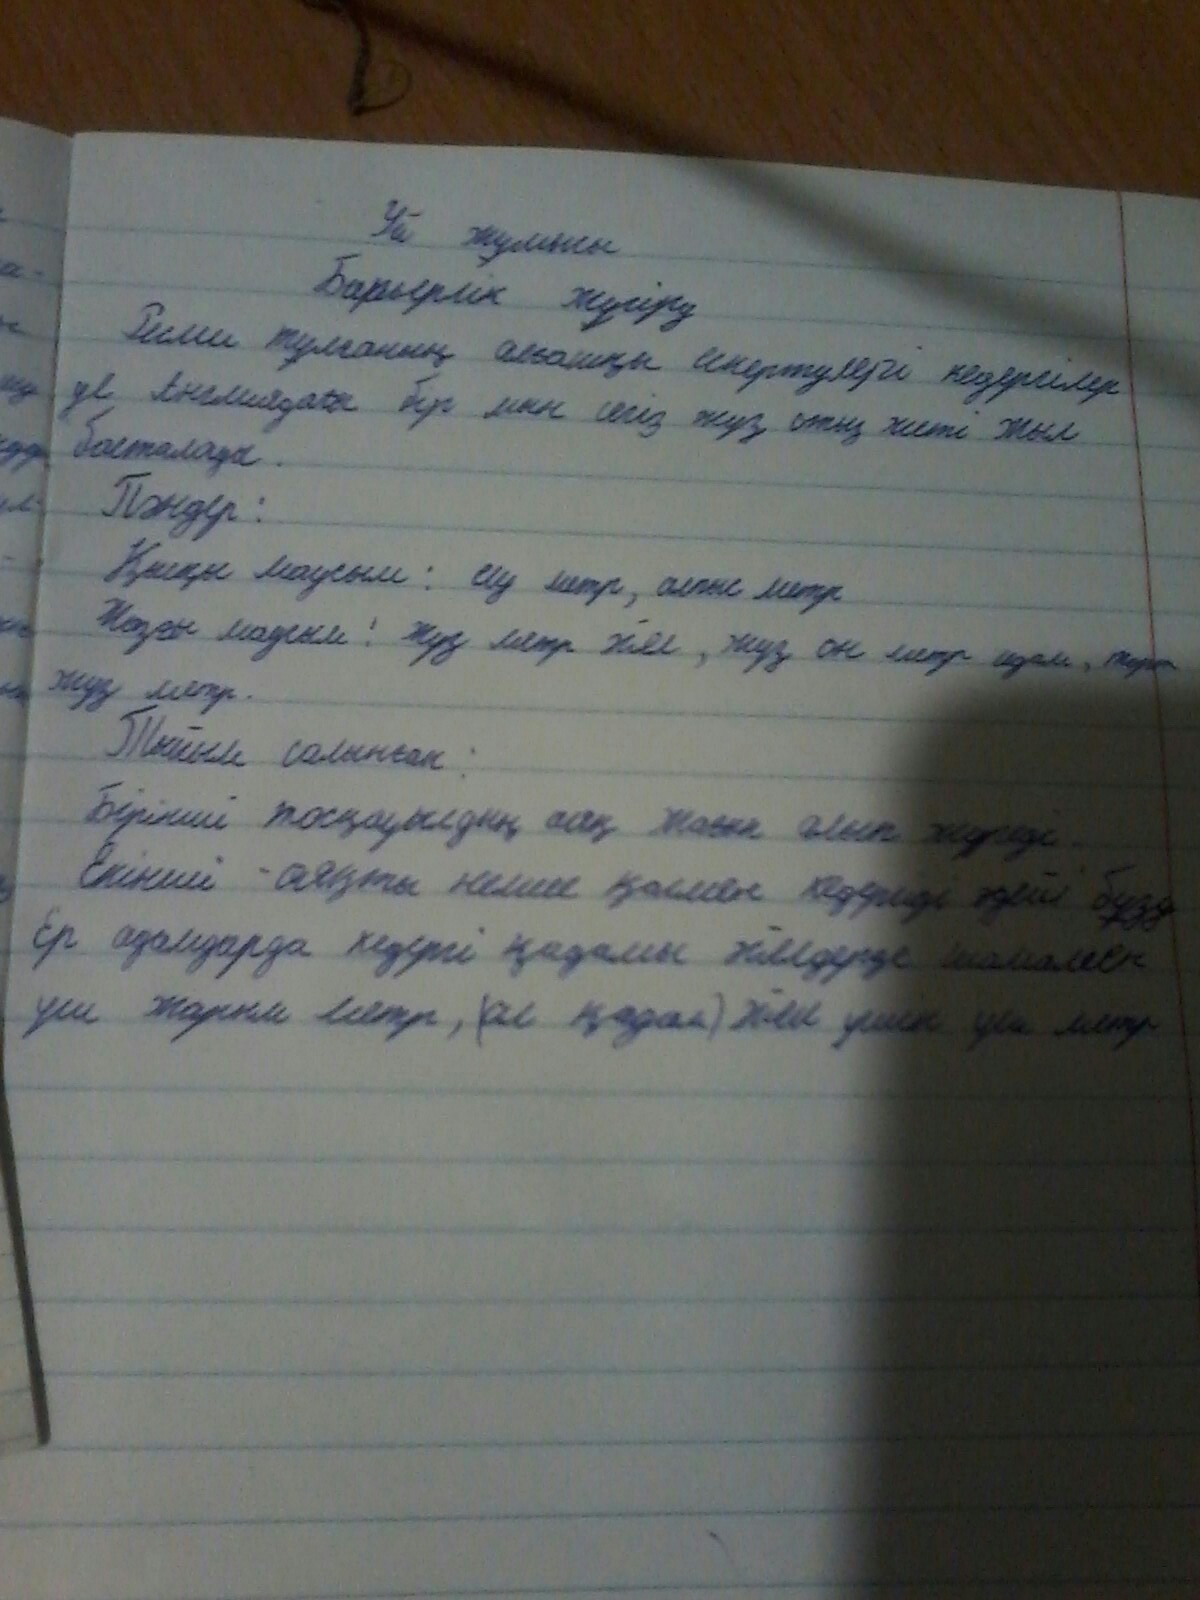 Үй жұмысы
Барьерлік жүгіру
Ресми тұлғаның алғашқы ескертулері кедергілер
де Англиядағы бір мың сегіз жүз отыз жеті жыл
басталады.
Пәндер:
Қысқы маусым: елу метр, алпыс метр
Жазғы маусым: жүз метр әйел, жүз он метр адам, төрт
жүз метр.
Тыйым салынған:
Бірінші тосқауылдың аяқ жағын алып жүреді.
Екінші - аяқты немесе қолмен кедергіді әдейі бұзу
Ер адамдарда кедергі қадамы әйелдерде шамамен
үш жарым метр, (ал қадам) әйел үшін үш метр